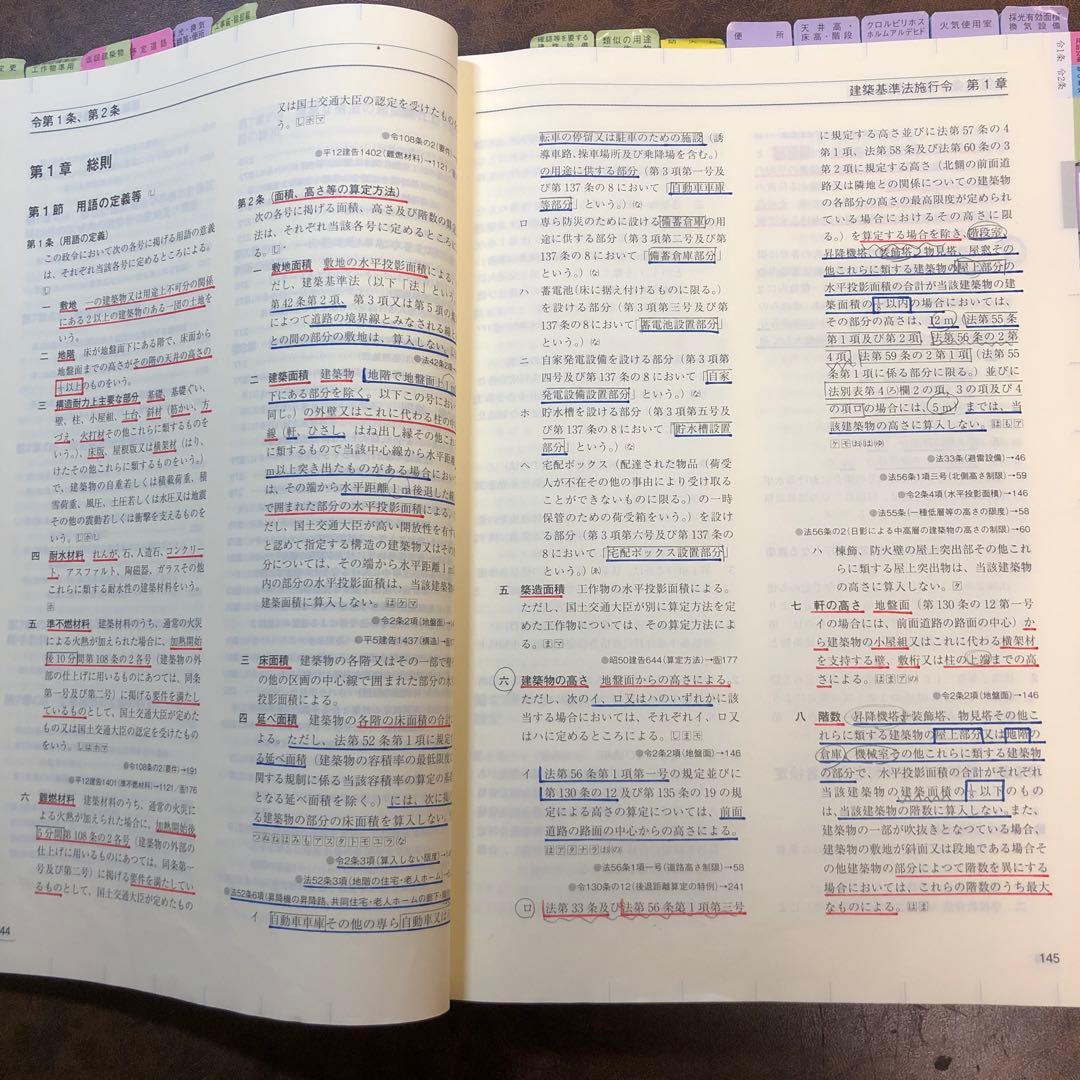 工作物準用
仮設建築物
予定道路
便所
天井高・床高・階段
クロルピリホス
ホルムアルデヒド
火気使用室
採光有効面積
換気設備
類似の用途
令1条 令2条
令第1条、第2条
第1章 総則
第1節 用語の定義等
第1条(用語の定義)
この政令において次の各号に掲げる用語の意義
は、それぞれ当該各号に定めるところによる。
一 敷地 一の建築物又は用途上不可分の関係
にある2以上の建築物のある一団の土地を
いう。
二 地階 床が地盤面下にある階で、床面から
地盤面までの高さがその階の天井の高さの
以上のものをいう。
三 構造耐力上主要な部分 基礎、基礎ぐい、
壁、柱、小屋組、土台、斜材(筋かい、方
づえ、火打材その他これらに類するものを
いう。)、床版、屋根版又は横架材(はり、
けたその他これらに類するものをいう。)
で、建築物の自重若しくは積載荷重、積
雪荷重、風圧、土圧若しくは水圧又は地震
その他の震動若しくは衝撃を支えるものを
いう。
四 耐水材料 れんが、石、人造石、コンクリー
ト、アスファルト、陶磁器、ガラスその他
これらに類する耐水性の建築材料をいう。
五 準不燃材料 建築材料のうち、通常の火災
による火熱が加えられた場合に、加熱開始
後10分間第108条の2各号(建築物の外
部の仕上げに用いるものにあつては、同条
第一号及び第二号)に掲げる要件を満たし
ているものとして、国土交通大臣が定めた
もの又は国土交通大臣の認定を受けたもの
をいう。
●令108条の2(要件)→191
●平12建告1401(準不燃材料)→1121/告176
六 難燃材料 建築材料のうち、通常の火災に
よる火熱が加えられた場合に、加熱開始後
5分間第108条の2各号(建築物の外部の
仕上げに用いるものにあつては、同条第一
号及び第二号)に掲げる要件を満たしてい
るものとして、国土交通大臣が定めたもの
44
又は国土交通大臣の認定を受けたもの
う。
●令108条の2(要件)
●平12建告1402(難燃材料)→1121
第2条(面積、高さ等の算定方法)
次の各号に掲げる面積、高さ及び階数の算
法は、それぞれ当該各号に定めるところに
る。
一 敷地面積 敷地の水平投影面積による。
だし、建築基準法(以下「法」という
第42条第2項、第3項又は第5項の
によつて道路の境界線とみなされる線
との間の部分の敷地は、算入しない。
●法42条2項
二 建築面積 建築物(地階で地盤面上1
下にある部分を除く。以下この号におい
同じ。)の外壁又はこれに代わる柱の中
線(軒、ひさし、はね出し縁その他これ
に類するもので当該中心線から水平距離
m以上突き出たものがある場合におい
は、その端から水平距離1m後退した線
で囲まれた部分の水平投影面積による。
だし、国土交通大臣が高い開放性を有す
と認めて指定する構造の建築物又はその
分については、その端から水平距離1m
内の部分の水平投影面積は、当該建築
建築面積に算入しない。
●令2条2項(地盤面)
●平5建告1437(構造)
三 床面積 建築物の各階又はその一部で壁
の他の区画の中心線で囲まれた部分の水
投影面積による。
四 延べ面積 建築物の各階の床面積の合計
よる。ただし、法第52条第1項に規定
る延べ面積(建築物の容積率の最低限度
関する規制に係る当該容積率の算定の基
となる延べ面積を除く。)には、次に掲
る建築物の部分の床面積を算入しない。
●令2条3項(算入しない限度)
●法52条3項(地階の住宅・老人ホーム)
●法52条6項(昇降機の昇降路、共同住宅・老人ホームの廊下・階
イ 自動車車庫その他の専ら自動車又は
建築基準法施行令 第1章
転車の停留又は駐車のための施設(誘
導車路、操車場所及び乗降場を含む。)
の用途に供する部分(第3項第一号及
び第137条の8において「自動車車庫
等部分」という。)
ロ 専ら防災のために設ける備蓄倉庫の用
途に供する部分(第3項第二号及び第
137条の8において「備蓄倉庫部分」
という。)
ハ 蓄電池(床に据え付けるものに限る。)
を設ける部分(第3項第三号及び第
137条の8において「蓄電池設置部分」
という。)
ニ 自家発電設備を設ける部分(第3項第
四号及び第137条の8において「自家
発電設備設置部分」という。)
ホ 貯水槽を設ける部分(第3項第五号及
び第137条の8において「貯水槽設置
部分」という。)
ヘ 宅配ボックス(配達された物品(荷受
人が不在その他の事由により受け取る
ことができないものに限る。)の一時
保管のための荷受箱をいう。)を設け
る部分(第3項第六号及び第137条の
8において「宅配ボックス設置部分」
という。)
五 築造面積 工作物の水平投影面積による。
ただし、国土交通大臣が別に算定方法を定
めた工作物については、その算定方法によ
る。
●昭50建告644(算定方法)→告177
六 建築物の高さ 地盤面からの高さによる。
ただし、次のイ、ロ又はハのいずれかに該
当する場合においては、それぞれイ、ロ又
はハに定めるところによる。
●令2条2項(地盤面)→146
イ 法第56条第1項第一号の規定並びに
第130条の12及び第135条の19の規
定による高さの算定については、前面
道路の路面の中心からの高さによる。
●法56条1項一号(道路高さ制限)→58
●令130条の12(後退距離算定の特例)→241
ロ 法第33条及び法第56条第1項第三号
に規定する高さ並びに法第57条の4
第1項、法第58条及び法第60条の3
第2項に規定する高さ(北側の前面道
路又は隣地との関係についての建築物
の各部分の高さの最高限度が定められ
ている場合におけるその高さに限
る。)を算定する場合を除き、階段室、
昇降機塔、装飾塔、物見塔、屋窓その
他これらに類する建築物の屋上部分の
水平投影面積の合計が当該建築物の建
築面積の以内の場合においては、
その部分の高さは、12m(法第55条
第1項及び第2項、法第56条の2第
4項、法第59条の2第1項(法第55
条第1項に係る部分に限る。)並びに
法別表第4ろ欄2の項、3の項及び4
の項ロの場合には、5m)までは、当
該建築物の高さに算入しない。
●法33条(避雷設備)→46
●法56条1項三号(北側高さ制限)→59
●令2条4項(水平投影面積)→146
●法55条(一種低層等の高さの限度)→58
●法56条の2(日影による中高層の建築物の高さの制限)→60
ハ 棟飾、防火壁の屋上突出部その他これ
らに類する屋上突出物は、当該建築物
の高さに算入しない。
七 軒の高さ 地盤面(第130条の12第一号
イの場合には、前面道路の路面の中心)か
ら建築物の小屋組又はこれに代わる横架材
を支持する壁、敷桁又は柱の上端までの高
さによる。
●令2条2項(地盤面)→146
八 階数 昇降機塔、装飾塔、物見塔その他こ
れらに類する建築物の屋上部分又は地階の
倉庫、機械室その他これらに類する建築物
の部分で、水平投影面積の合計がそれぞれ
当該建築物の建築面積の以下のもの
は、当該建築物の階数に算入しない。また、
建築物の一部が吹抜きとなつている場合、
建築物の敷地が斜面又は段地である場合そ
の他建築物の部分によつて階数を異にする
場合においては、これらの階数のうち最大
なものによる。
145